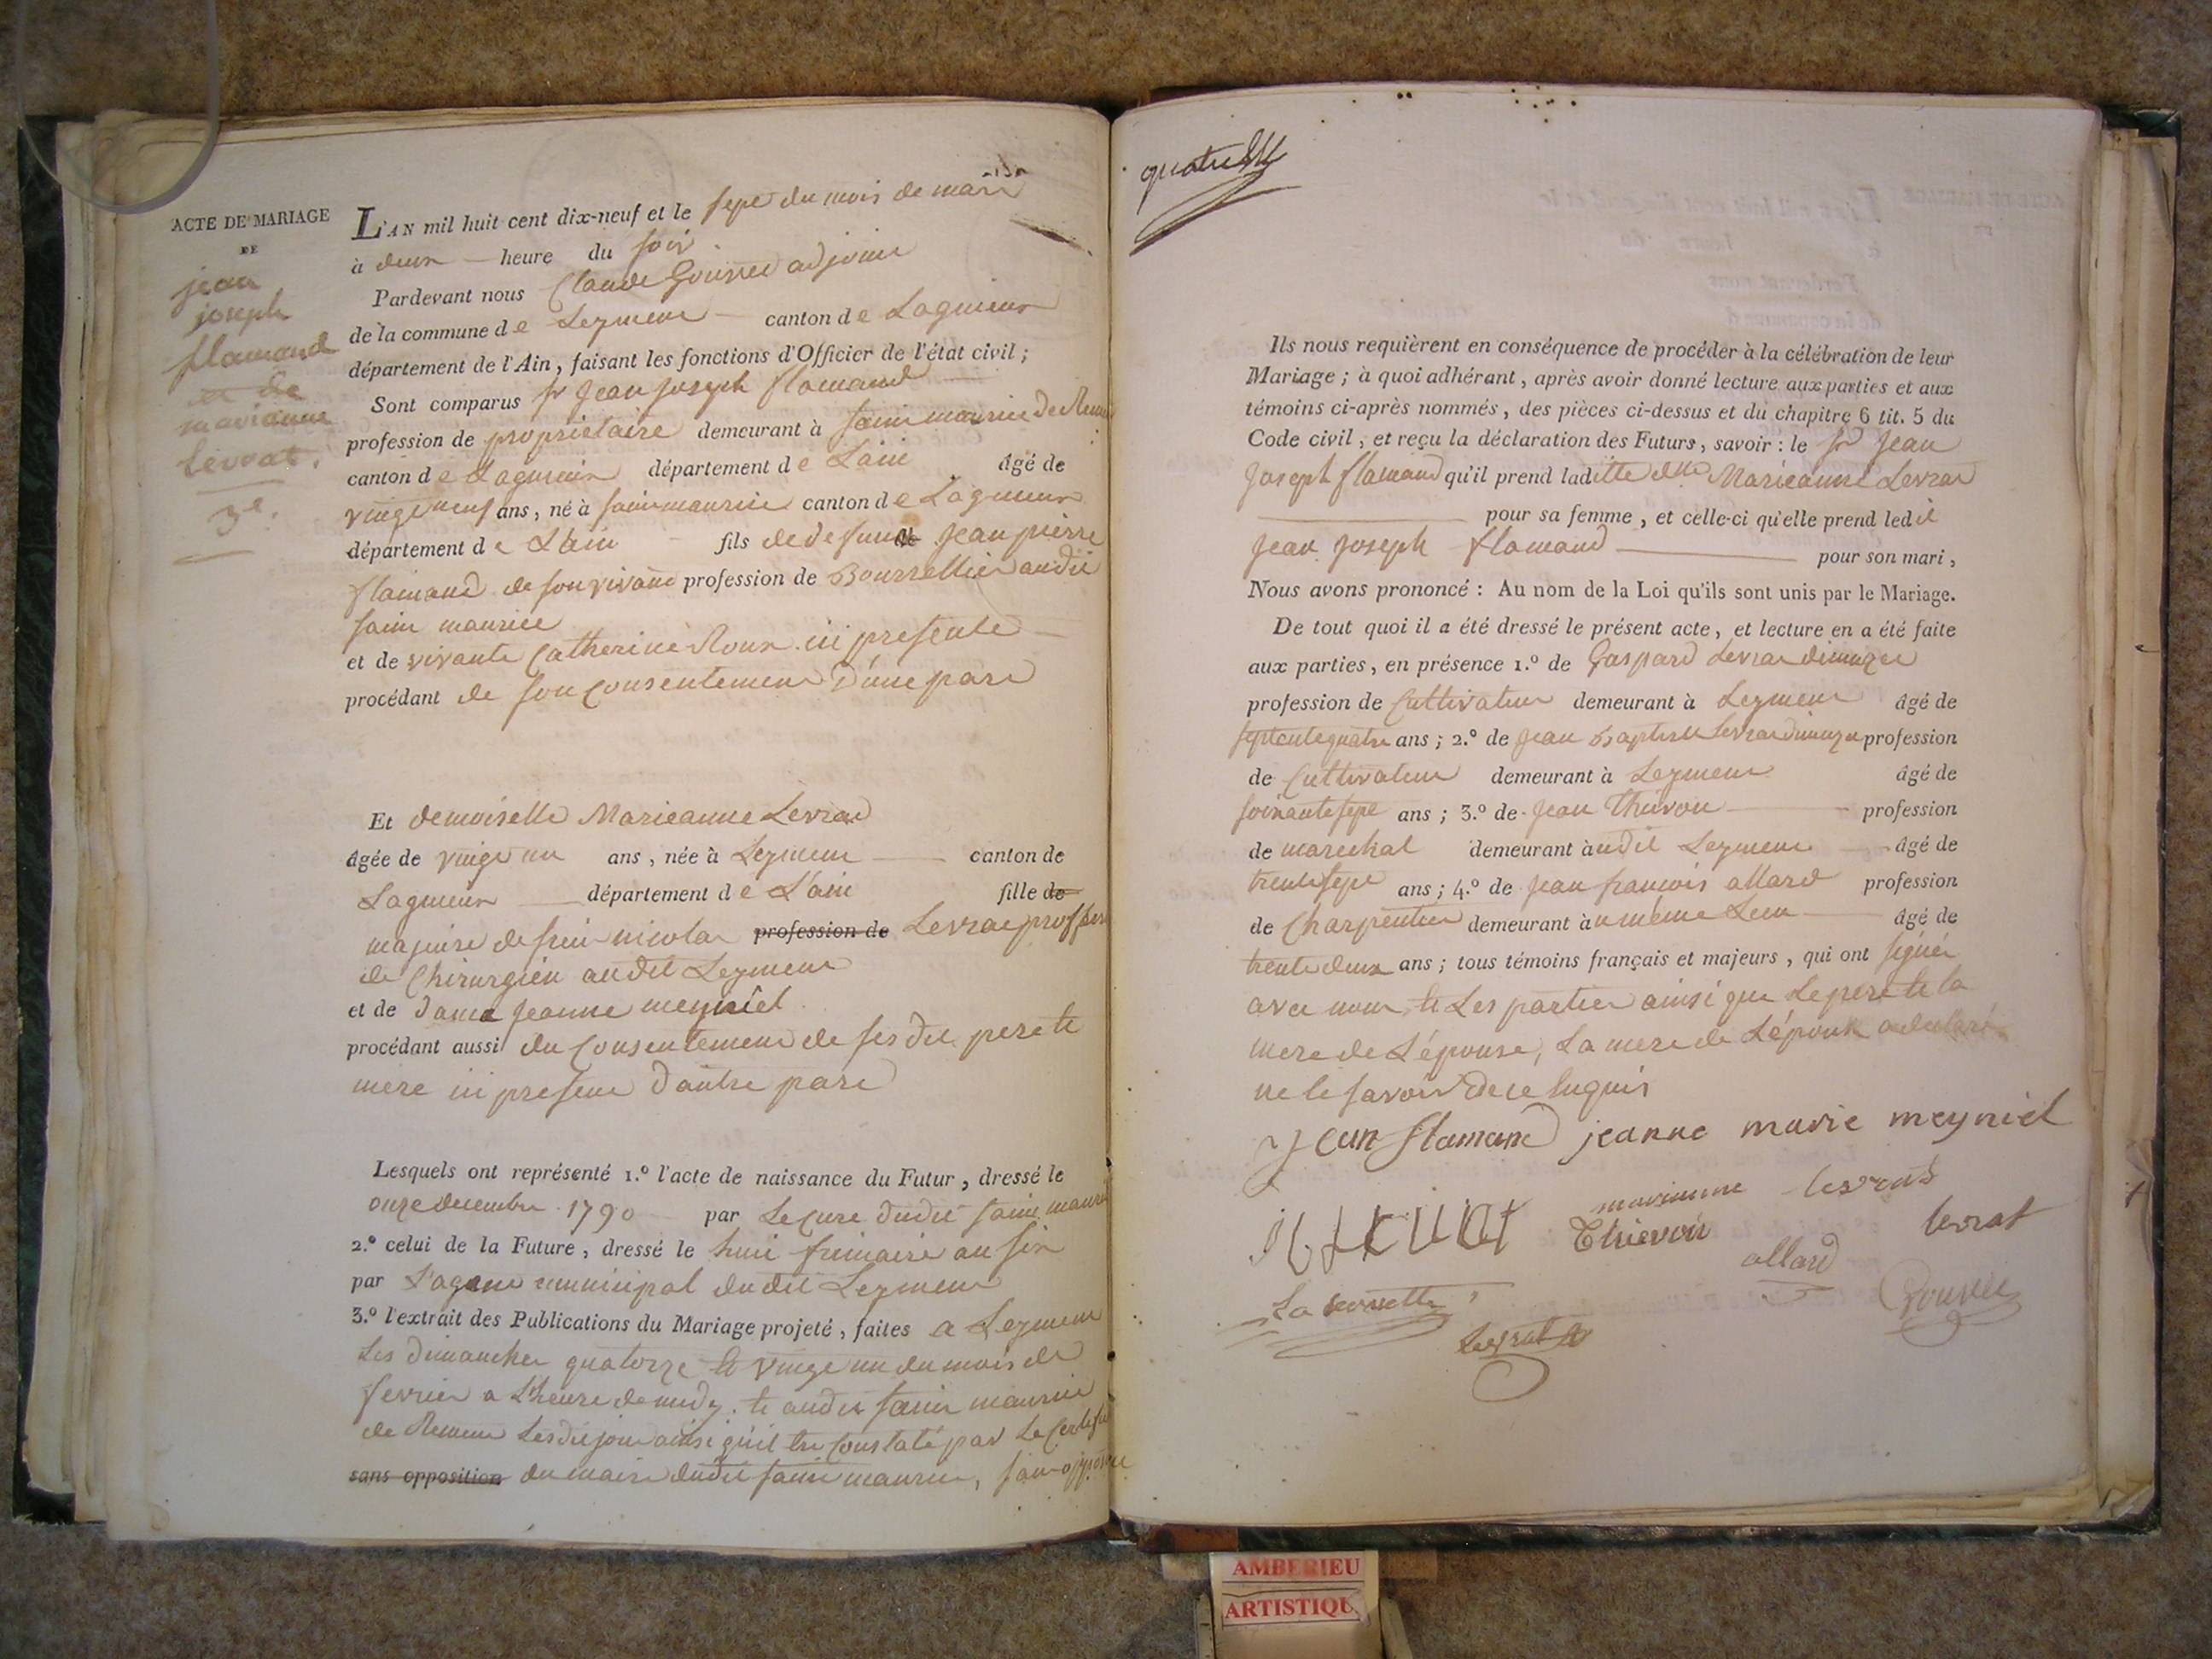 ACTE DE MARIAGE
DE
jean
joseph
flamand
et de
marianne
levrat.
3e.
L'AN mil huit cent dix-neuf et le sept du mois de mars
à deux heure du soir
Pardevant nous Claude adjoint
de la commune de Leymens canton de Lagnieux
département de l'Ain, faisant les fonctions d'Officier de l'état civil;
Sont comparus sr Jean Joseph flamand
profession de propriétaire demeurant à saint maurice de
canton de Lagnieux département de L'ain âgé de
vingt neuf ans, né à saint maurice canton de Lagnieux
département de L'ain fils de defunct Jean pierre
flamand de son vivant profession de Bourrellier audit
saint maurice
et de vivante Catherine Roux ici presente
procédant de son consentement D'une part
Et demoiselle Marieanne Levrat
âgée de vingt un ans, née à Leymens canton de
Lagnieux département de L'ain fille de
majeure de nicolas profession de Levrat
de Chirurgien audit Leymens
et de dame Jeanne meyniel
procédant aussi du Consentement de ses dit pere et
mere ici present D'autre part
Lesquels ont représenté 1.º l'acte de naissance du Futur, dressé le
onze decembre 1790 par Le Curé dudit saint maurice
2.º celui de la Future, dressé le huit frimaire an six
par L'agent municipal dudit Leymens
3.º l'extrait des Publications du Mariage projeté, faites a Leymens
Les dimanches quatorze et vingt un du mois de
fevrier a L'heure de midy et audit saint maurice
de Remens Lesdit jour ainsi qu'il est Constaté par Le
sans opposition du maire dudit saint maurice, sans opposition
Ils nous requièrent en conséquence de procéder à la célébration de leur
Mariage; à quoi adhérant, après avoir donné lecture aux parties et aux
témoins ci-après nommés, des pièces ci-dessus et du chapitre 6 tit. 5 du
Code civil, et reçu la déclaration des Futurs, savoir: le sr Jean
Joseph flamand qu'il prend laditte dlle Marieanne Levrat
pour sa femme, et celle-ci qu'elle prend ledit
Jean Joseph flamand pour son mari,
Nous avons prononcé: Au nom de la Loi qu'ils sont unis par le Mariage.
De tout quoi il a été dressé le présent acte, et lecture en a été faite
aux parties, en présence 1.º de Gaspard Levrat
profession de Cultivateur demeurant à Leymens âgé de
septente quatre ans; 2.º de Jean Baptiste Levrat profession
de Cultivateur demeurant à Leymens âgé de
soixante sept ans; 3.º de Jean profession
de marechal demeurant àudit Leymens âgé de
trente sept ans; 4.º de Jean françois allard profession
de Charpentier demeurant àu même Lieu âgé de
trente deux ans; tous témoins français et majeurs, qui ont signés
avec nous et Les parties ainsi que Le pere et la
mere de L'épouse, La mere de L'époux a declaré
ne le savoir de ce Enquis
jean flamand jeanne marie meyniel
marianne levrat
Thievon
levrat
allard